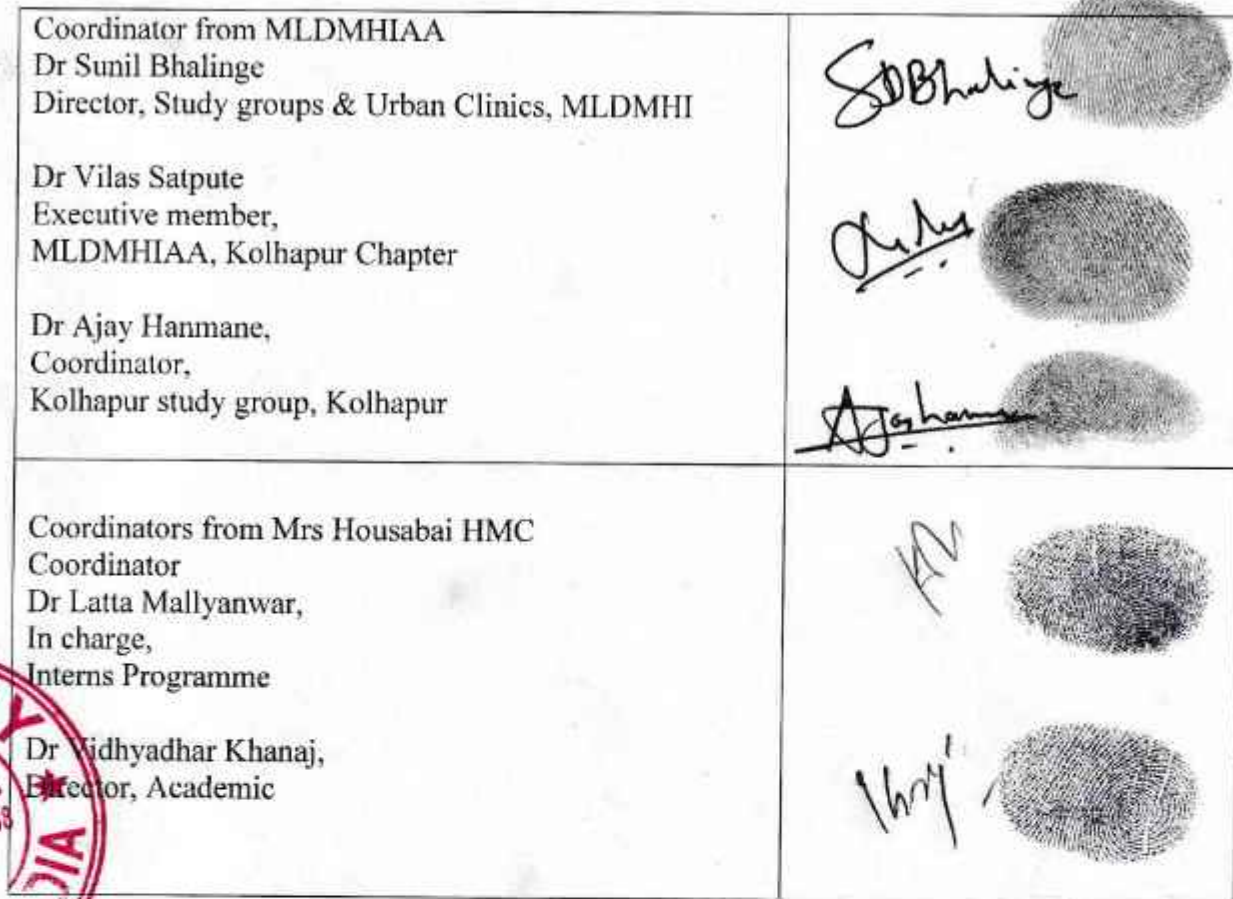 Coordinator from MLDMHIAA
Dr Sunil Bhalinge
Director, Study groups & Urban Clinics, MLDMHI
SDBhalinge
Dr Vilas Satpute
Executive member,
MLDMHIAA, Kolhapur Chapter
Dr Ajay Hanmane,
Coordinator,
Kolhapur study group, Kolhapur
Coordinators from Mrs Housabai HMC
Coordinator
Dr Latta Mallyanwar,
In charge,
Interns Programme
Dr Vidhyadhar Khanaj,
Director, Academic